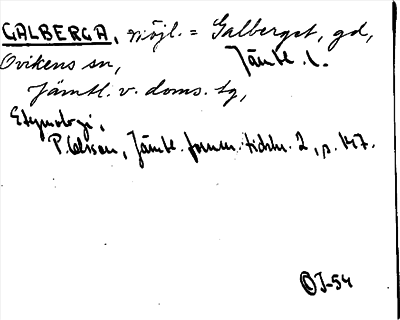 GALBERGA, möjl. = Galberget, gd,
Ovikens sn, Jämtl. l.
Jämtl. v. doms. tg,
Etymologi,
P. Olsson, Jämtl. fornm. tidskr. 2, p. 147.
OJ-54